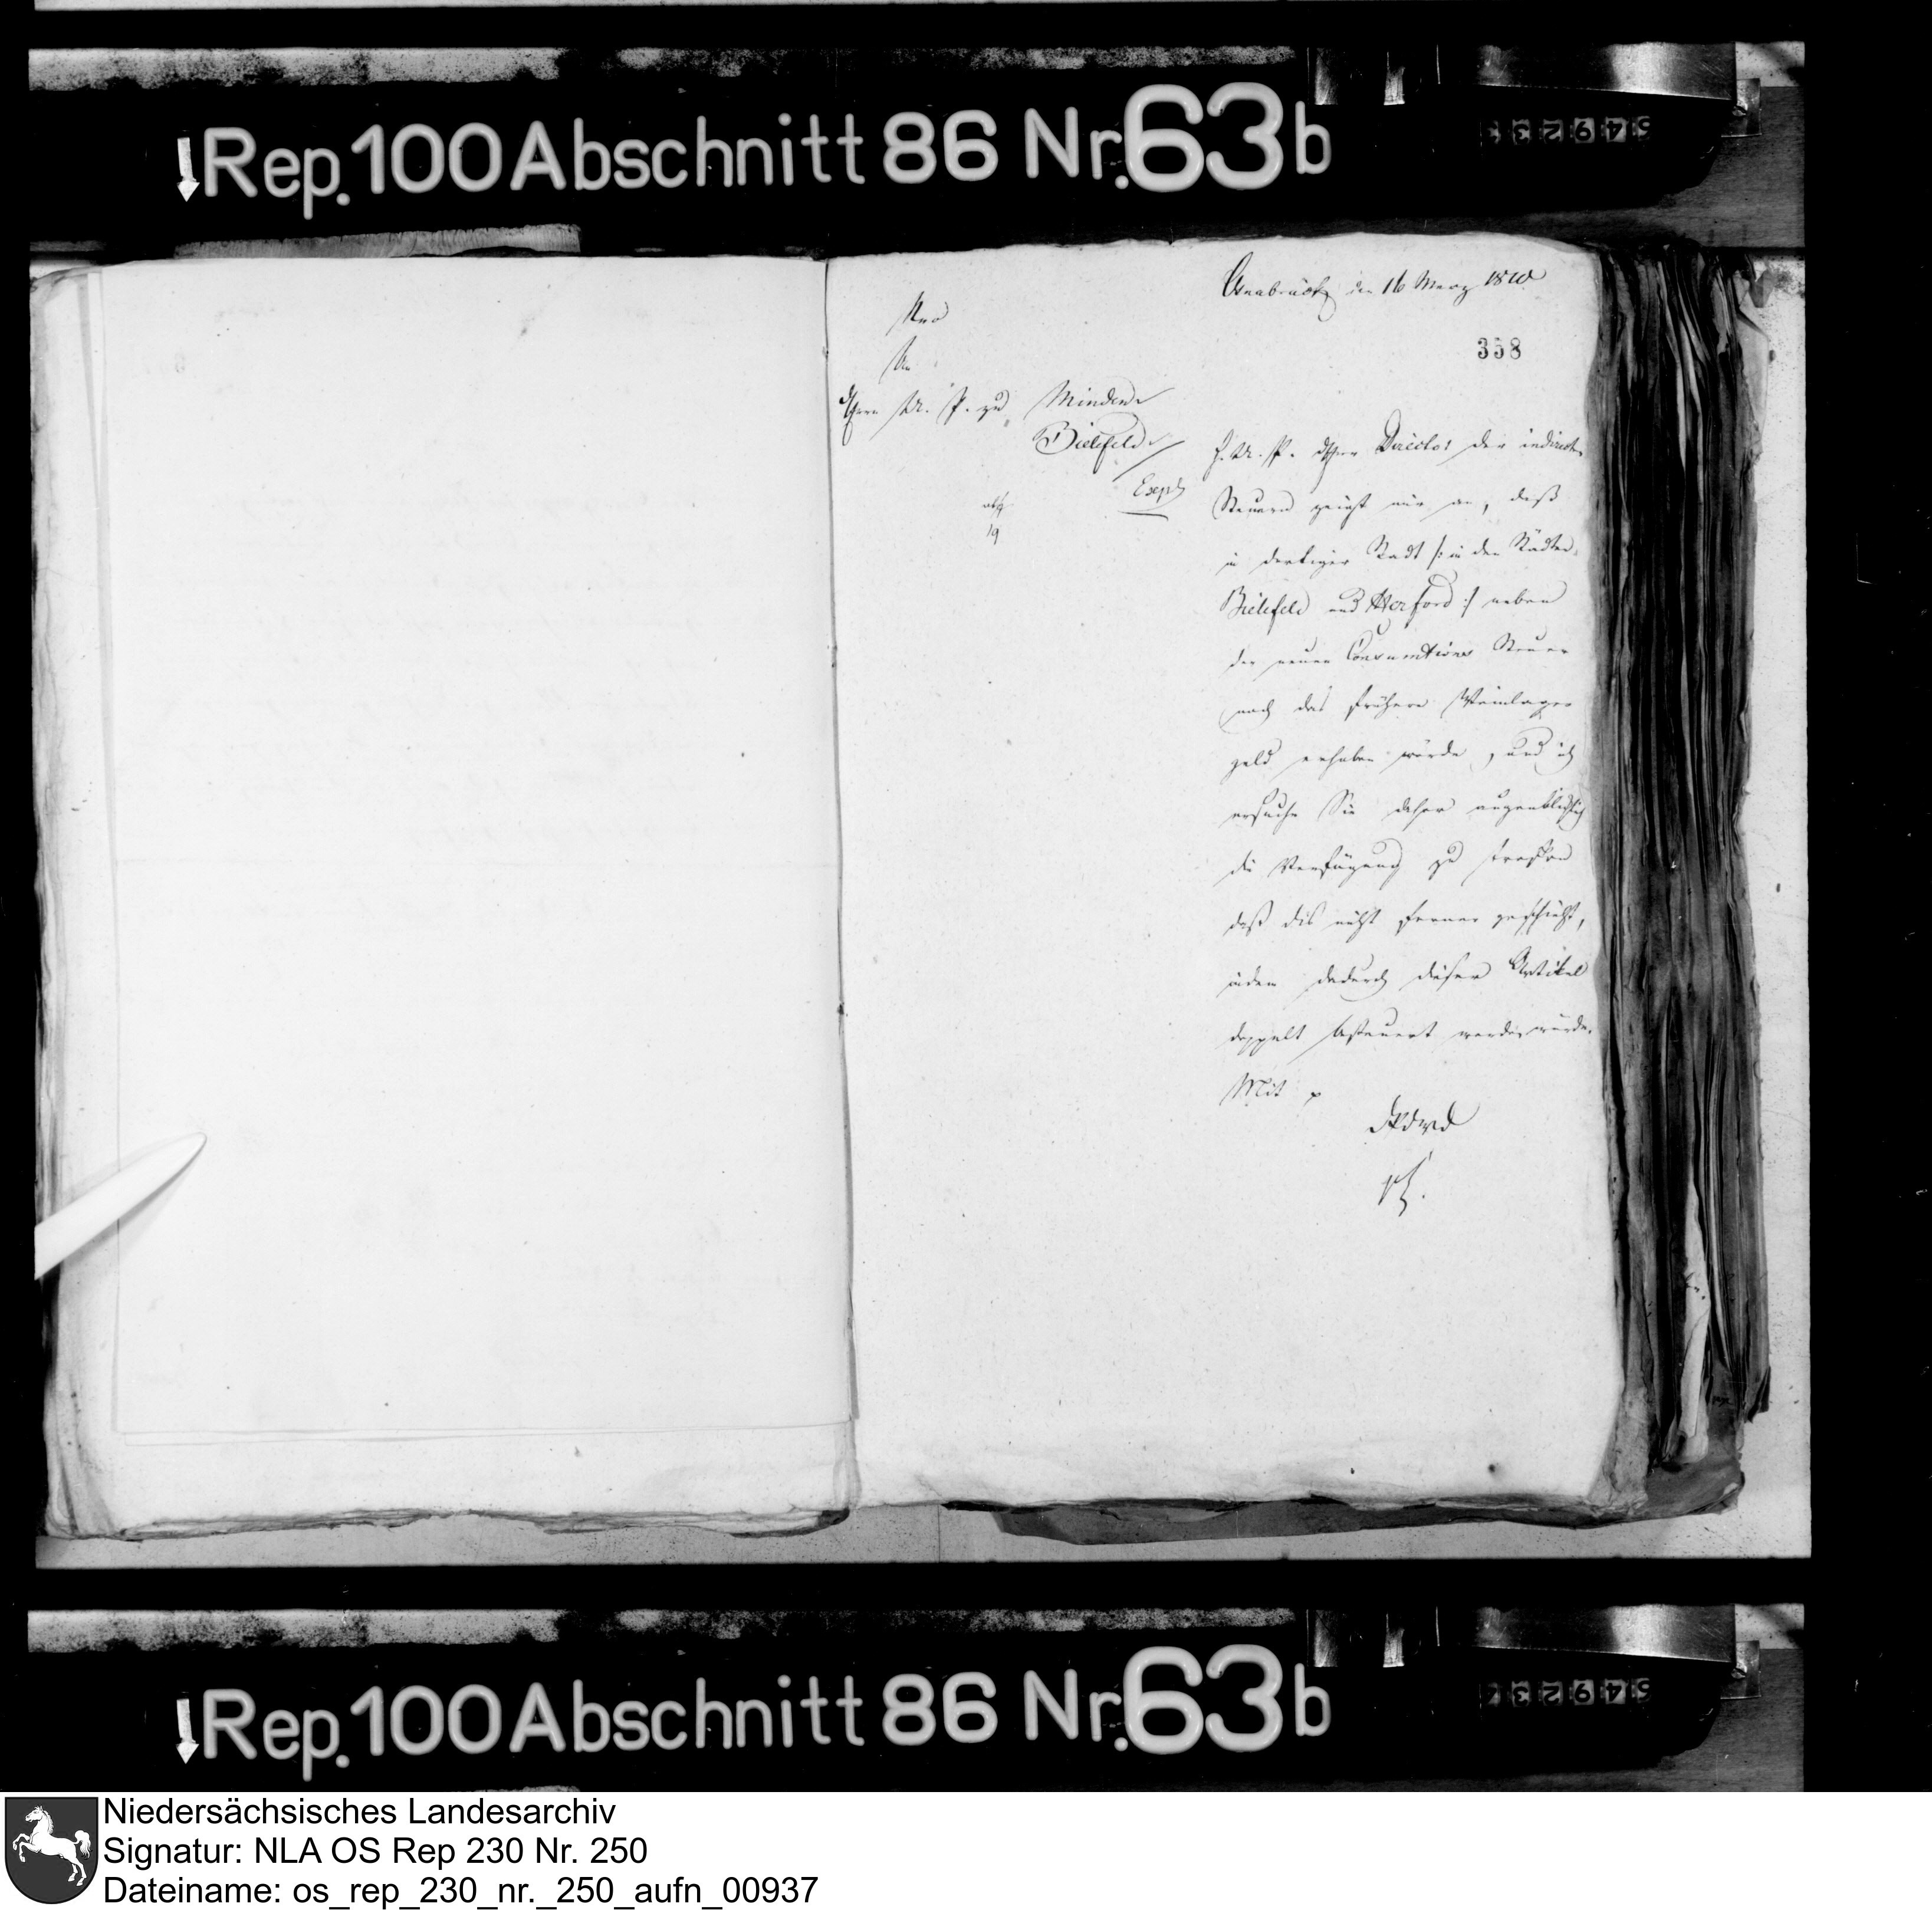 Rep. 100 Abschnitt 86 Nr. 63 b
Osnabrück den 16 Merz 1810
358
An
Herrn U. P. zu Minden
Bielefeld
Exped
abg
19
H. U. P. Herr Director der indirecten
Steuern zeigt mir an, daß
in dortiger Stadt /: in den Städten
Bielefeld und Herford :/ neben
der neuen Consumtions Steuer
noch das frühere Weinlager
geld erhoben würde, und ich
ersuche Sie daher augenblicklich
die Verfügung zu treffen
daß dis nicht ferner geschieht,
indem dadurch dieser Artikel
doppelt besteuert werden würde.
Mit
Rep. 100 Abschnitt 86 Nr. 63 b
Niedersächsisches Landesarchiv
Signatur: NLA OS Rep 230 Nr. 250
Dateiname: os_rep_230_nr._250_aufn_00937